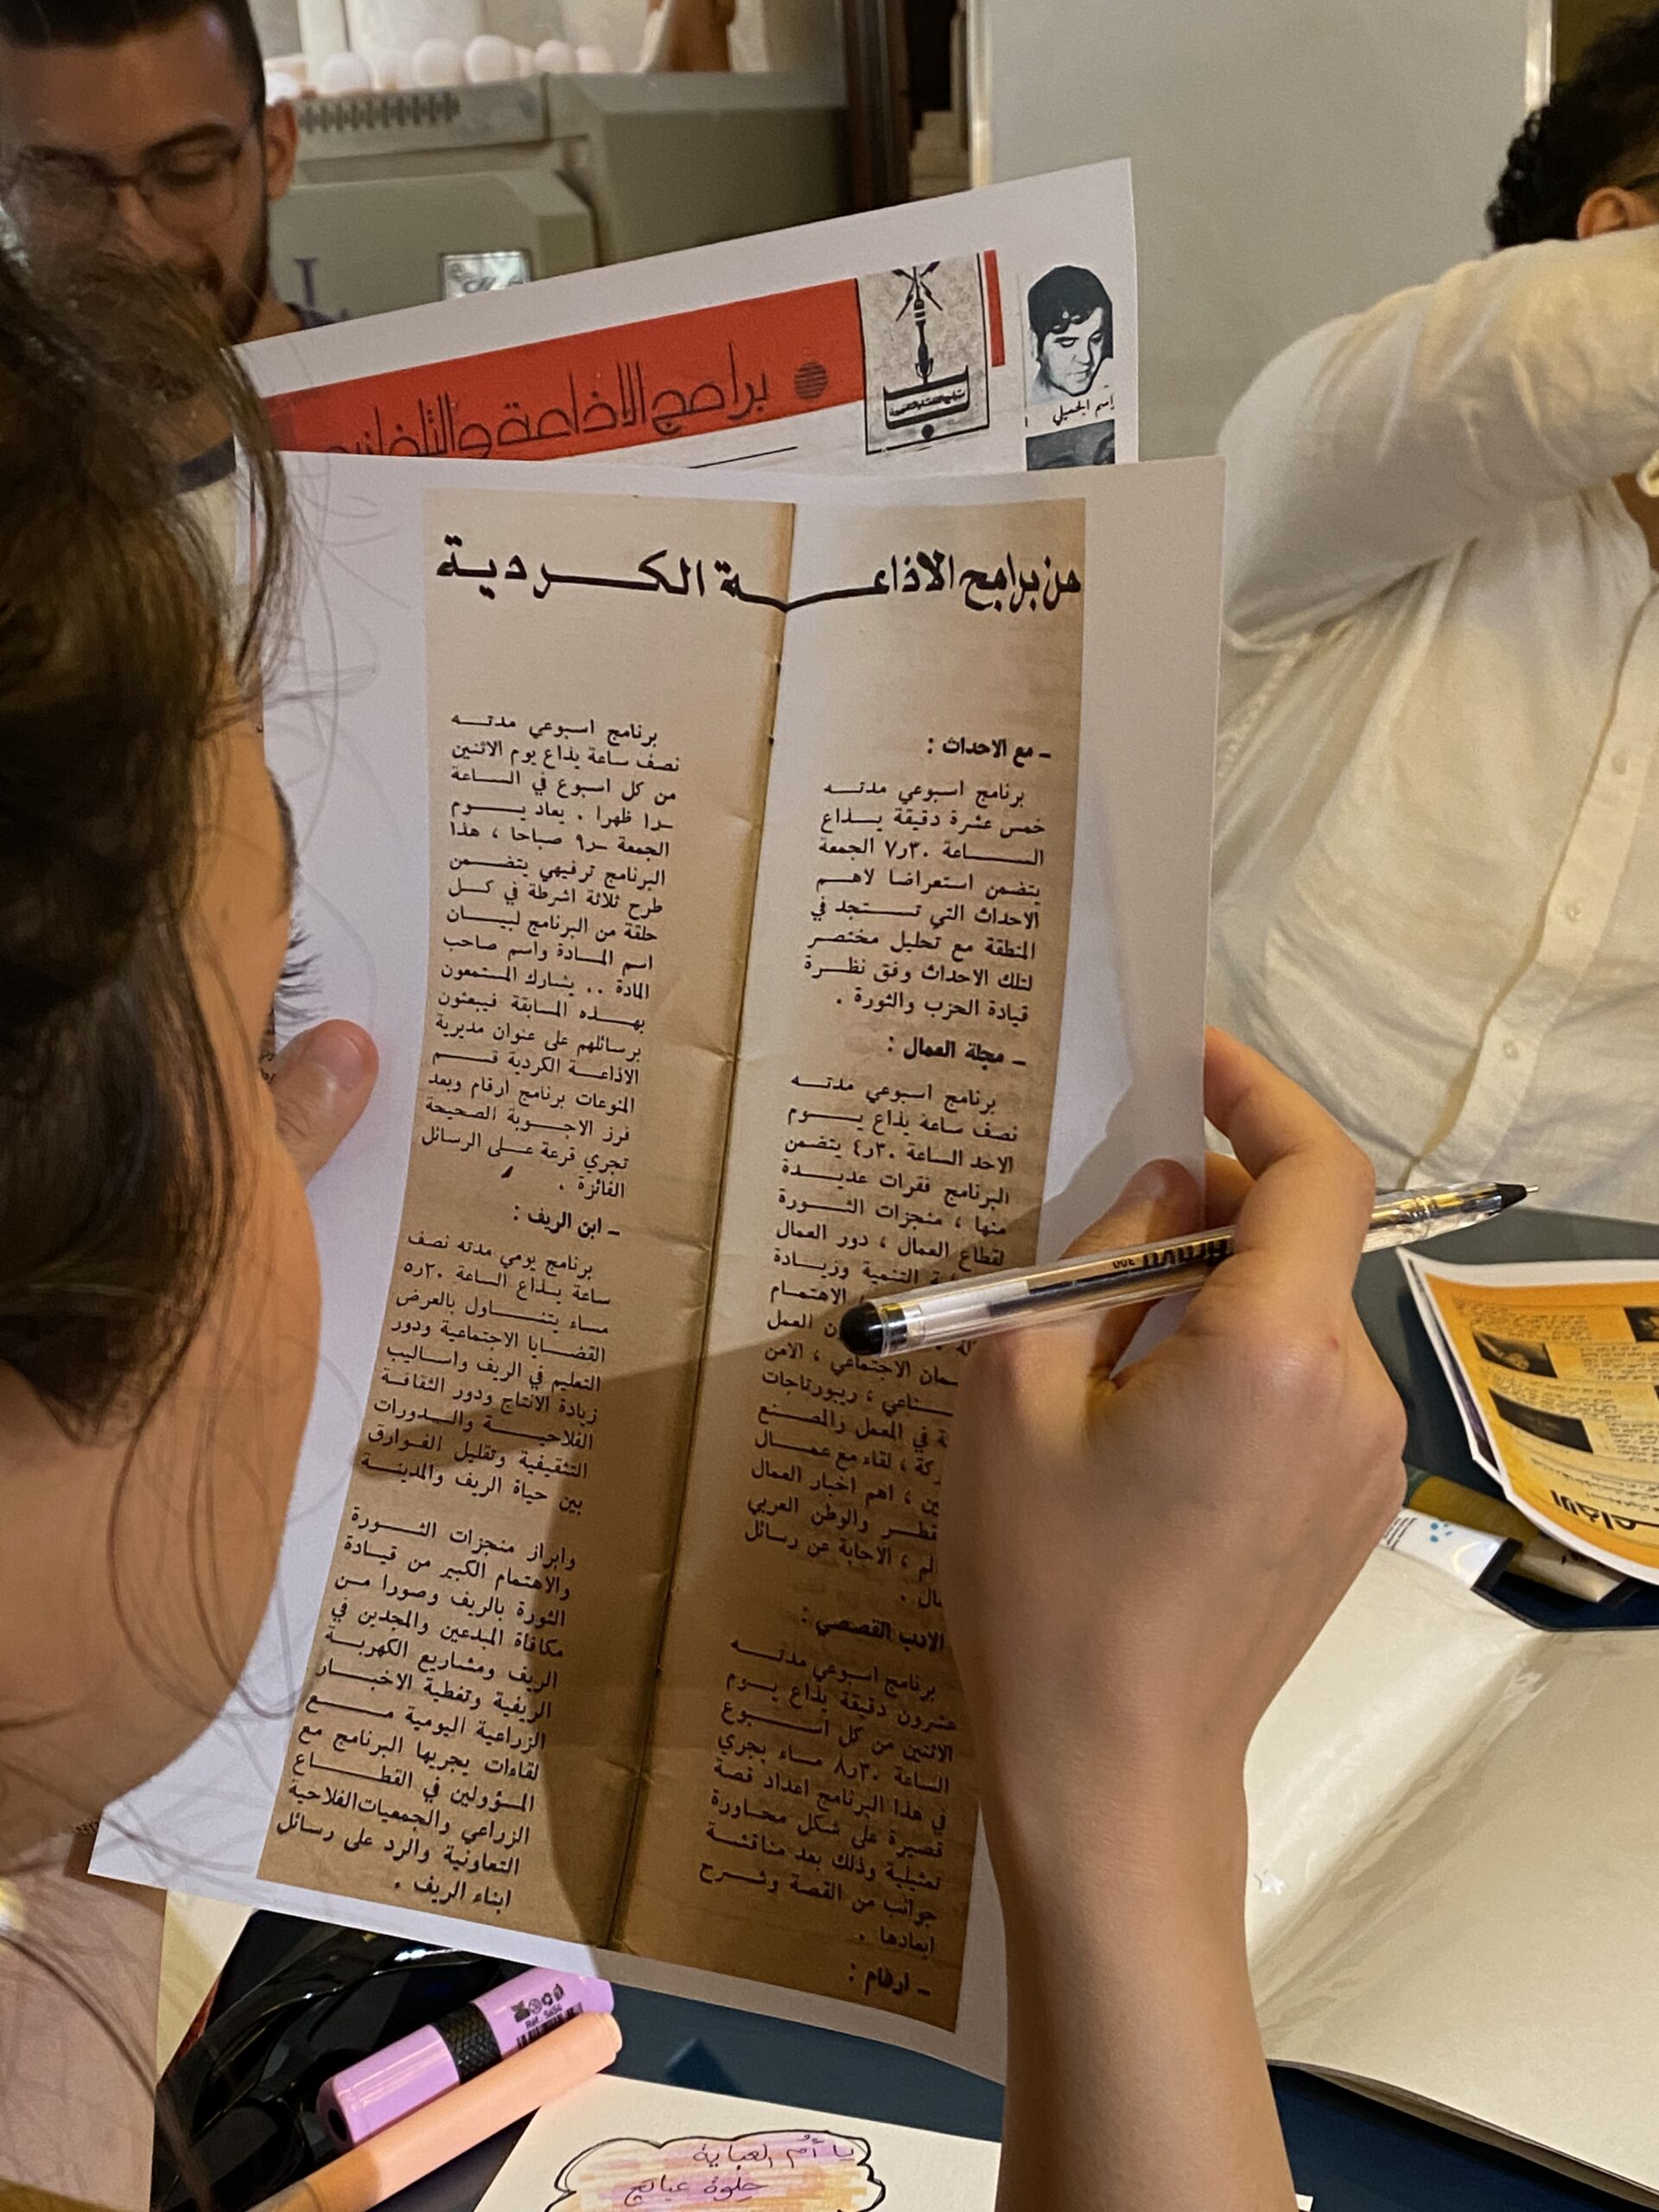 برامج الاذاعة والتلفزيون
راسم الجميلي
من برامج الاذاعة الكردية
- مع الاحداث :
برنامج اسبوعي مدته
خمس عشرة دقيقة يذاع
الساعة ٧٫٣٠ الجمعة
يتضمن استعراضا لاهم
الاحداث التي تستجد في
المنطقة مع تحليل مختصر
لتلك الاحداث وفق نظرة
قيادة الحزب والثورة .
- مجلة العمال :
برنامج اسبوعي مدته
نصف ساعة يذاع يوم
الاحد الساعة ٤٫٣٠ يتضمن
البرنامج فقرات عديدة
منها ، منجزات الثورة
لقطاع العمال ، دور العمال
التنمية وزيادة
الاهتمام
العمل
الاجتماعي ، الامن
ريبورتاجات
في المعمل والمصنع
لقاء مع عمال
اهم اخبار العمال
والوطن العربي
الاجابة عن رسائل
الادب القصصي :
برنامج اسبوعي مدته
عشرون دقيقة يذاع يوم
الاثنين من كل اسبوع
الساعة ٨٫٣٠ مساء يجري
في هذا البرنامج اعداد قصة
قصيرة على شكل محاورة
تمثيلية وذلك بعد مناقشة
جوانب من القصة وشرح
ابعادها .
- ارقام :
برنامج اسبوعي مدته
نصف ساعة يذاع يوم الاثنين
من كل اسبوع في الساعة
ظهرا . يعاد يوم
الجمعة ٩٫ صباحا ، هذا
البرنامج ترفيهي يتضمن
طرح ثلاثة اشرطة في كل
حلقة من البرنامج لبيان
اسم المادة واسم صاحب
المادة .. يشارك المستمعون
بهذه المسابقة فيبعثون
برسائلهم على عنوان مديرية
الاذاعة الكردية قسم
المنوعات برنامج ارقام وبعد
فرز الاجوبة الصحيحة
تجري قرعة على الرسائل
الفائزة .
- ابن الريف :
برنامج يومي مدته نصف
ساعة يذاع الساعة ٥٫٣٠
مساء يتناول بالعرض
القضايا الاجتماعية ودور
التعليم في الريف واساليب
زيادة الانتاج ودور الثقافة
الفلاحية والدورات
التثقيفية وتقليل الفوارق
بين حياة الريف والمدينة
وابراز منجزات الثورة
والاهتمام الكبير من قيادة
الثورة بالريف وصورا من
مكافاة المبدعين والمجدين في
الريف ومشاريع الكهربة
الريفية وتغطية الاخبار
الزراعية اليومية مع
لقاءات يجريها البرنامج مع
المسؤولين في القطاع
الزراعي والجمعيات الفلاحية
التعاونية والرد على رسائل
ابناء الريف .
يا أم العباية
حلوة عباتج